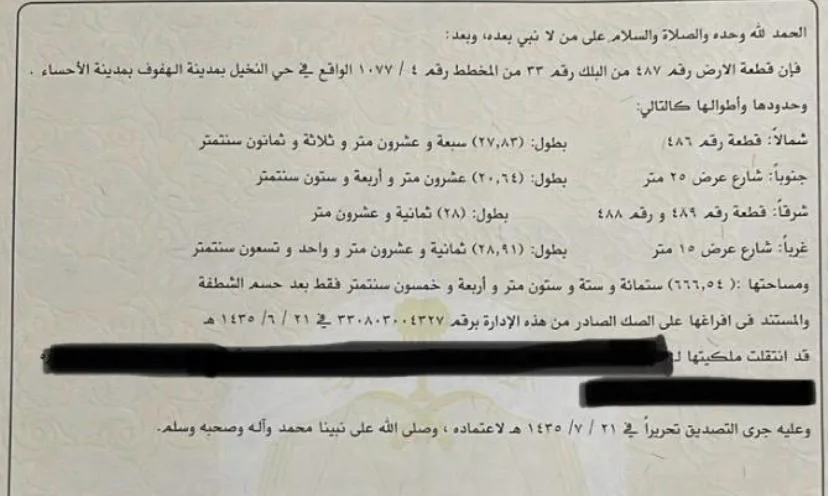 الحمد لله وحده والصلاة والسلام على من لا نبي بعده، وبعد:
فإن قطعة الارض رقم ٤٨٧ من البلك رقم ٣٣ من المخطط رقم ٤ / ١٠٧٧ الواقع في حي النخيل بمدينة الهفوف بمدينة الأحساء .
وحدودها وأطوالها كالتالي:
شمالاً: قطعة رقم ٤٨٦ بطول: (٢٧,٨٣) سبعة و عشرون متر و ثلاثة و ثمانون سنتمتر
جنوباً: شارع عرض ٢٥ متر بطول: (٢٠,٦٤) عشرون متر و أربعة و ستون سنتمتر
شرقاً: قطعة رقم ٤٨٩ و رقم ٤٨٨ بطول: (٢٨) ثمانية و عشرون متر
غرباً: شارع عرض ١٥ متر بطول: (٢٨,٩١) ثمانية و عشرون متر و واحد و تسعون سنتمتر
ومساحتها :(٦٦٦,٥٤) ستمائة و ستة و ستون متر و أربعة و خمسون سنتمتر فقط بعد حسم الشطفة
والمستند في افراغها على الصك الصادر من هذه الإدارة برقم ٣٣٠٨٠٣٠٠٤٣٢٧ في ٢١ / ٦ / ١٤٣٥ هـ
قد انتقلت ملكيتها لـ
وعليه جرى التصديق تحريراً في ٢١ / ٧ / ١٤٣٥ هـ لاعتماده ، وصلى الله على نبينا محمد وآله وصحبه وسلم.